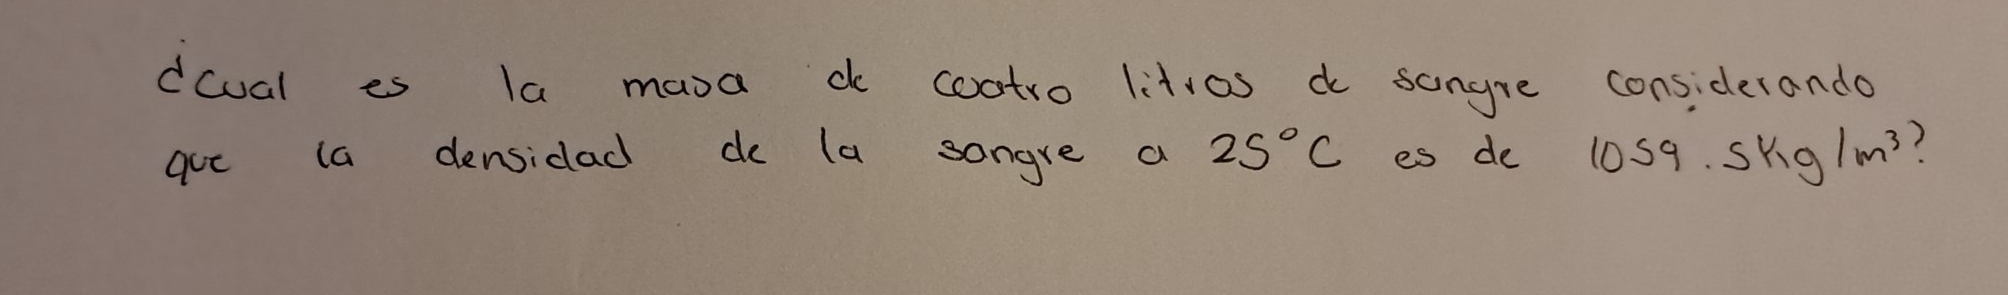 ¿Cual es la masa de cuatro litros de sangre considerando
que la densidad de la sangre a 25°C es de 1059.5Kg/m³?